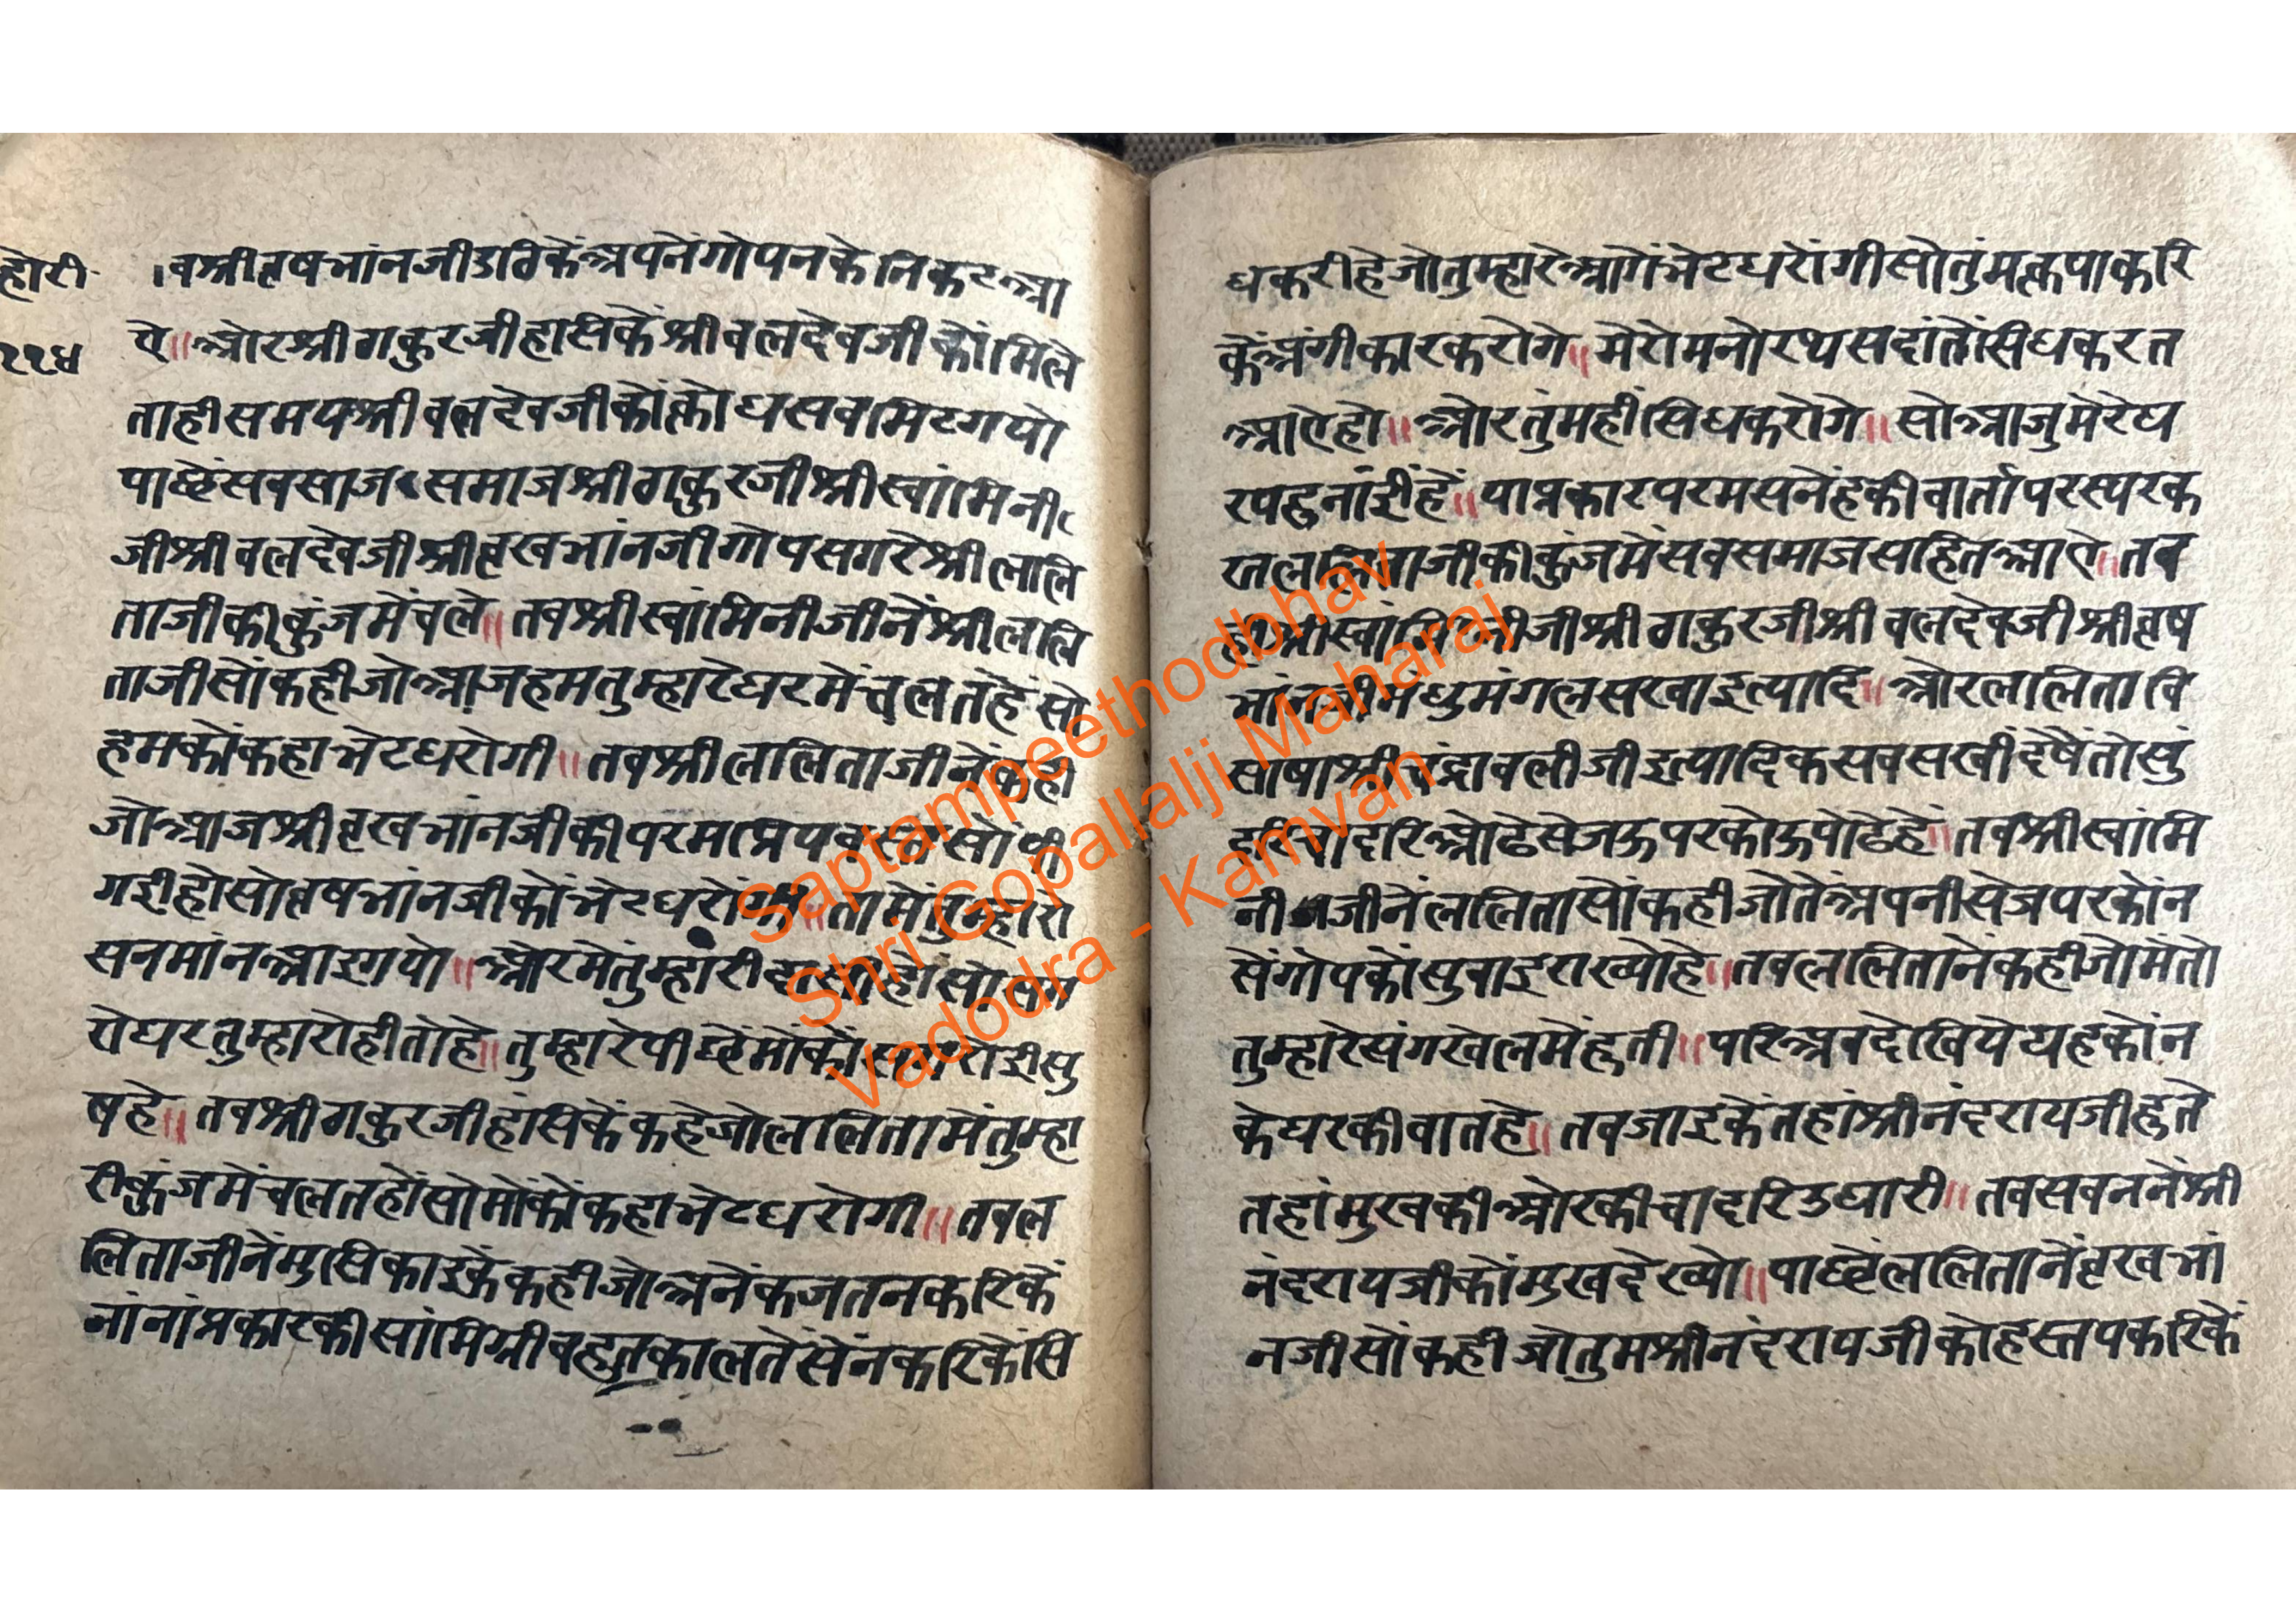 होरी
११४
वश्रीवृषभांनजीउठिकेंअपनेंगोपनकेनिकटआ
ए॥ओरश्रीठाकुरजीहासिकेंश्रीबलदेवजीकोंमिले
ताहीसमयश्रीबलदेवजीकोंक्रोधसबमिटगयो
पाछेंसबसाजसमाजश्रीठाकुरजीश्रीस्वांमिनी
जीश्रीबलदेवजीश्रीवृखभांनजीगोपसगरेश्रीललि
ताजीकीकुंजमेंचले॥तबश्रीस्वांमिनीजीनेंश्रीललि
ताजीसोंकहीजोआजहमतुम्हारेघरमेंचलतहेंसो
हमकोंकहाभेटधरोगी॥तबश्रीललिताजीनेंकही
जोआजश्रीवृखभांनजीकीपरमप्रिय
गईहोसोवृषभांनजीकोंभेटधरोंगी॥तामेंतुम्हारो
सनमांनआइगयो॥ओरमेंतुम्हारीदासीहोंसोसग
रोघरतुम्हारोहीतोहे॥तुम्हारेपीछेंमोंकों
षहे॥तबश्रीठाकुरजीहांसिकेंकहेजोललितामेंतुम्हा
रीकुंजमेंचलतहोंसोमोंकोंकहाभेटधरोगी॥तबल
लिताजीनेंमुसिकाइकेंकहीजोअनेंकजतनकरिकें
नांनांप्रकारकीसांमिग्रीबहुतकालतेंसेंनकरिकेंसि
धकरीहेजोतुम्हारेआगेंभेटधरोंगीसोतुंमकृपाकरि
केंअंगीकारकरोगे॥मेरोमनोरथसदांतोंसिधकरत
आऐहो॥ओरतुंमहींसिधकरोगे॥सोआजुमेरेघ
रपहुनांईहें॥याप्रकारपरमसनेंहकीवार्तापरस्परक
रतललिताजीकीकुंजमेंसबसमाजसहितआऐ॥तब
हीश्रीस्वांमिनीजीश्रीठाकुरजीश्रीबलदेवजीश्रीवृष
भांनजीमधुमंगलसखाइत्यादि॥ओरललितावि
साषाश्रीचंद्रावलीजीइत्यादिकसबसखींदेषेंतोसुं
दरिचादरिओढेसेजऊपरकोऊपोढेहें॥तबश्रीस्वांमि
नीजीनेंललितासोंकहीजोतेंअपनीसेजपरकोंन
सेंगोपकोंसुवाइराख्योहे॥तबललितानेंकहीजोमेंतो
तुम्हारेसंगखेलमेंहुती॥परिअबदेखियेयहकोंन
केघरकीवातहे॥तबजाइकेंतहांश्रीनंदरायजीहुते
तहांमुखकीओरकीचादरिउघारी॥तबसबननेंश्री
नंदरायजीकोंमुखदेख्यो॥पाछेंललितानेंवृखभां
नजीसोंकहीजोतुमश्रीनंदरायजीकोहस्तपकरिकें
Saptampeethodbhav
Shri Gopallalji Maharaj
Vadodra - Kamvan